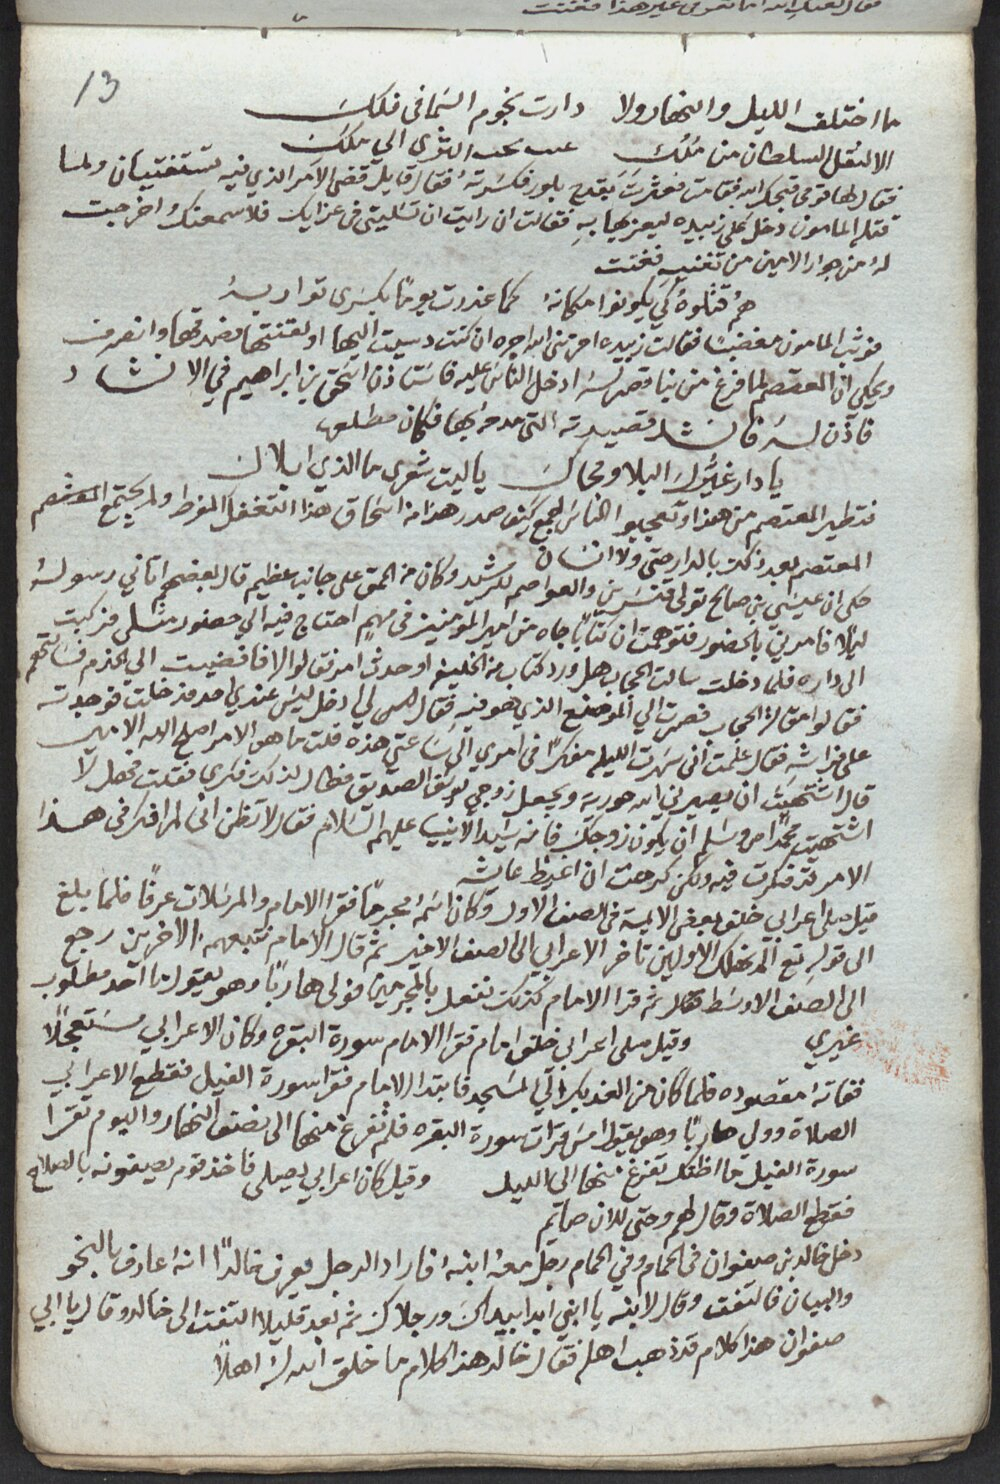 13
ما اختلف الليل والنهار ولا دارت نجوم السما في فلك
الا لنقل السلطان من ملك تحت الثرى الى ملك
فقال لها قومي قبحك الله فقامت فعثرت بقدح بلور فكسرته فقال قايل قضى الامر الذي فيه تستفتيان ولما
قتله المامون دخل على زبيده ليعزيها به فقالت ان رايت ان تسليني في عزايك فلا سمعنك اخرجت
له من جوار الامين من تغنيه فغنت
هم قتلوه كي يكونوا مكانه كما غدرت يوما بكسرى توازيه
فوثب المامون مغضبا فقالت زبيده احرمني الله اجره ان كنت دسيت اليها او لقنتها فصدقها وانصرف
ويحكى ان المعتصم لما فرغ من بنا قصر له ادخل الناس عليه فاستاذن اسحق بن ابراهيم في الانشاد
فآذن له فانشد قصيدته التي مدحه بها فكان مطلعها
يا دار غيرك البلا ومحاك يا ليت شعري ما الذي ابلاك
فتطير المعتصم من هذا وتعجبوا الناس لجمع كيف صدر هذا من اسحاق هذا التغفل المفرط ولم يجتمع المعتصم
المعتصم بعد ذلك بالدار حتى ولا انسان
حكى ان عيسى بن صالح تولى قنسرين والعواصم للرشيد وكان من الحمق على جانب عظيم قال بعضهم اتاني رسوله
ليلا فامرني بالحضور فتوهمت ان كتابا جاه من امير المومنين في مهم احتاج فيه الى حضور مثلي فركبت
الى داره فلما دخلت سالت الحجاب هل ورد كتاب من الخليفه او حدث امر فقالوا لا فافضيت الى الخدم فسالتهم
فقالوا مقالة الحجاب فصرت الى الموضع الذي هو فيه فقال لي ادخل ليس عندي احد فدخلت فوجدته
على فراشه فقال علمت انى سهرت الليله مفكرا في امري الى ساعتي هذه قلت ما هو الامر اصلح الله الامير
قال اشتهيت ان يصيرني الله حورية ويجعل زوجي يوسف الصديق فطال لذلك فكري فقلت فهل لا
اشتهيت محمدا ص وسلم ان يكون زوجك فانه سيد الانبيا عليهم السلام فقال لا تظن انى لم افكر في هذا
الامر قد فكرت فيه ولكن كرهت ان اغيظ عائشه
قيل صلى اعرابي خلف بعض الايمة في الصف الاول وكان اسمه مجرما فقرا الامام والمرسلات عرفا فلما بلغ
الى قوله تع الم نهلك الاولين تاخر الاعرابي الى الصف الاخير ثم قال الامام نتبعهم الاخرين رجع
الى الصف الاوسط ثم قرا الامام كذلك نفعل بالمجرمين فولى هاربا وهو يقول ما احد مطلوب
غيري وقيل صلى اعرابي خلف امام فقرا الامام سورة البقره وكان الاعرابي مستعجلا
ففاته مقصوده فلما كان من الغد بكر الى المسجد فابتدا الامام فقرا سورة الفيل فقطع الاعرابي
الصلاة وولي هاربا وهو يقول امس قرات سورة البقره فلم تفرغ منها الى نصف النهار واليوم تقرا
سورة الفيل ما اظنك تفرغ منها الى الليل وقيل كان اعرابي يصلى فاخذ قوم يصفونه بالصلاح
فقطع الصلاة وقال لهم وحتى للان صايم
دخل خالد بن صفوان في الحمام وفي الحمام رجل معه ابنه فاراد الرجل يعرف خالدا انه عارف بالنحو
والبيان فالتفت وقال لابنه يا ابني ابدا بيداك ورجلاك ثم بعد قليلا التفت الى خالد وقال يا ابي
صفوان هذا كلام قد ذهب اهله فقال خالد هذا كلام ما خلق الله له اهلا